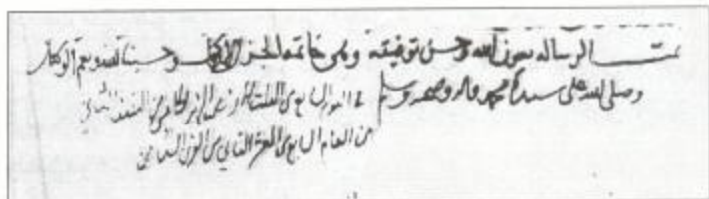 تمت الرساله بعون الله وحسن توفيقه وهى خاتمه الجزء وحسبنا الله ونعم الوكيل
وصلى الله على سيدنا محمد واله وصحبه وسلم فى اليوم الرابع من الثلث من الشهر من النصف الثانى
من العام الرابع من العشر الثانى من القرن الثامن